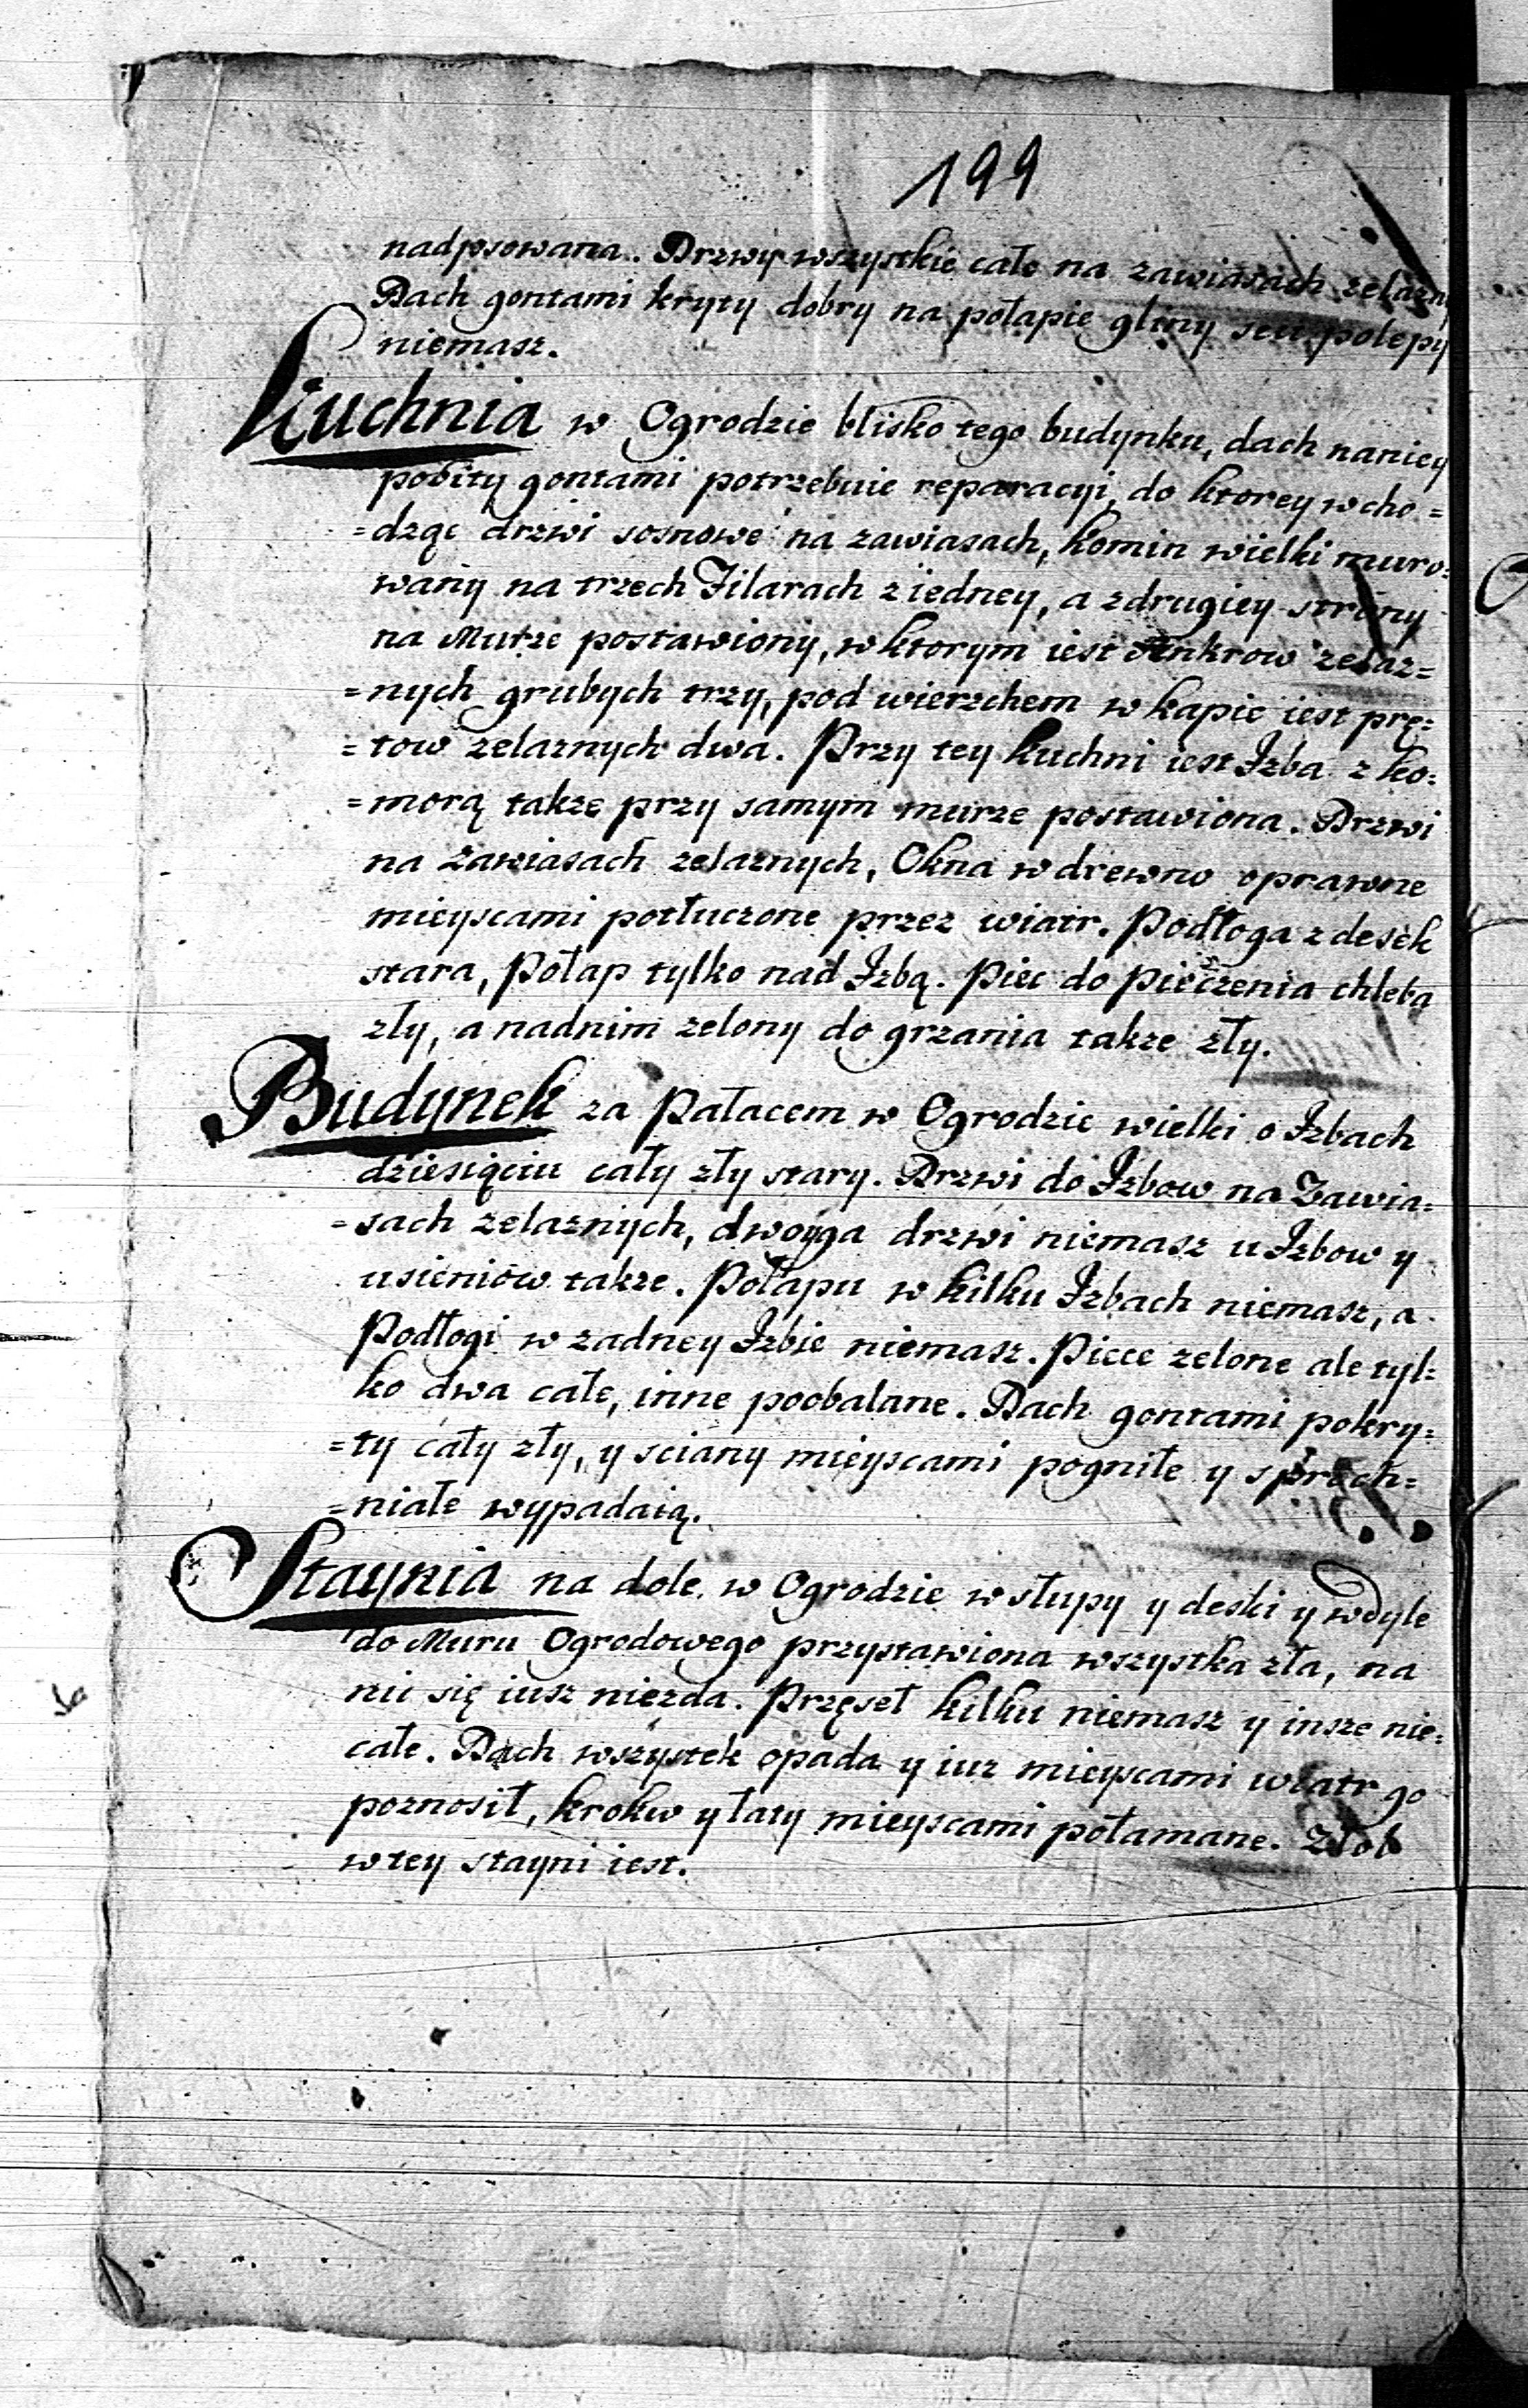 199
nadpsowana. Drzwy wszystkie całe na zawiasach zelazny
Dach gontami kryty dobry na połapie gliny seu polepy
niemasz.
Kuchnia w Ogrodzie blisko tego budynku, dach naniey
pobity gontami potrzebuie reparacyi, do ktorey wcho=
=dząc drzwi sosnowe na zawiasach, komin wielki muro=
wany na trzech Filarach z iedney, a zdrugiey strony
na Murze postawiony, w ktorym iest Ankrow zelaz=
=nych grubych trzy, pod wierzchem w kapie iest prę=
=tow zelaznych dwa. Przy tey kuchni iest Izba z ko=
=morą takze przy samym murze postawiona. Drzwi
na zawiasach zelaznych, Okna w drewno oprawne
mieyscami potłuczone przez wiatr. Podłoga z desek
stara, Połap tylko nad Izbą. Piec do Pieczenia chleba
zły, a nadnim zelony do grzania takze zły.
Budynek za Pałacem w Ogrodzie wielki o Izbach
dziesiąciu cały zły stary. Drzwi do Izbow na Zawia=
=sach zelaznych, dwoyga drzwi niemasz u Izbow y
usieniow takze. Połapu w kilku Izbach niemasz, a
Podłogi w zadney Izbie niemasz. Piece zelone ale tyl=
ko dwa całe, inne poobalane. Dach gontami pokry=
=ty cały zły, y sciany mieyscami pogniłe y sproch=
=niałe wypadaią.
Staynia na dole w Ogrodzie w słupy y deski y wdyle
do Muru Ogrodowego przystawiona wszystka zła, na
nic się iusz niezda. Przęseł kilku niemasz y insze nie=
całe. Dach wszystek opada y iuz mieyscami wiatr go
poznosił, krokw y łaty mieyscami połamane. Złob
w tey stayni iest.